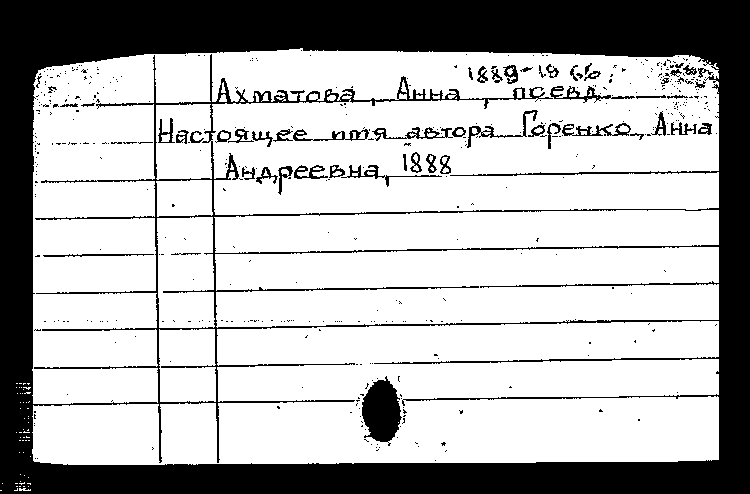 1889-1966.
Ахматова, Анна, псевд.
Настоящее имя автора Горенко, Анна
Андреевна, 1888